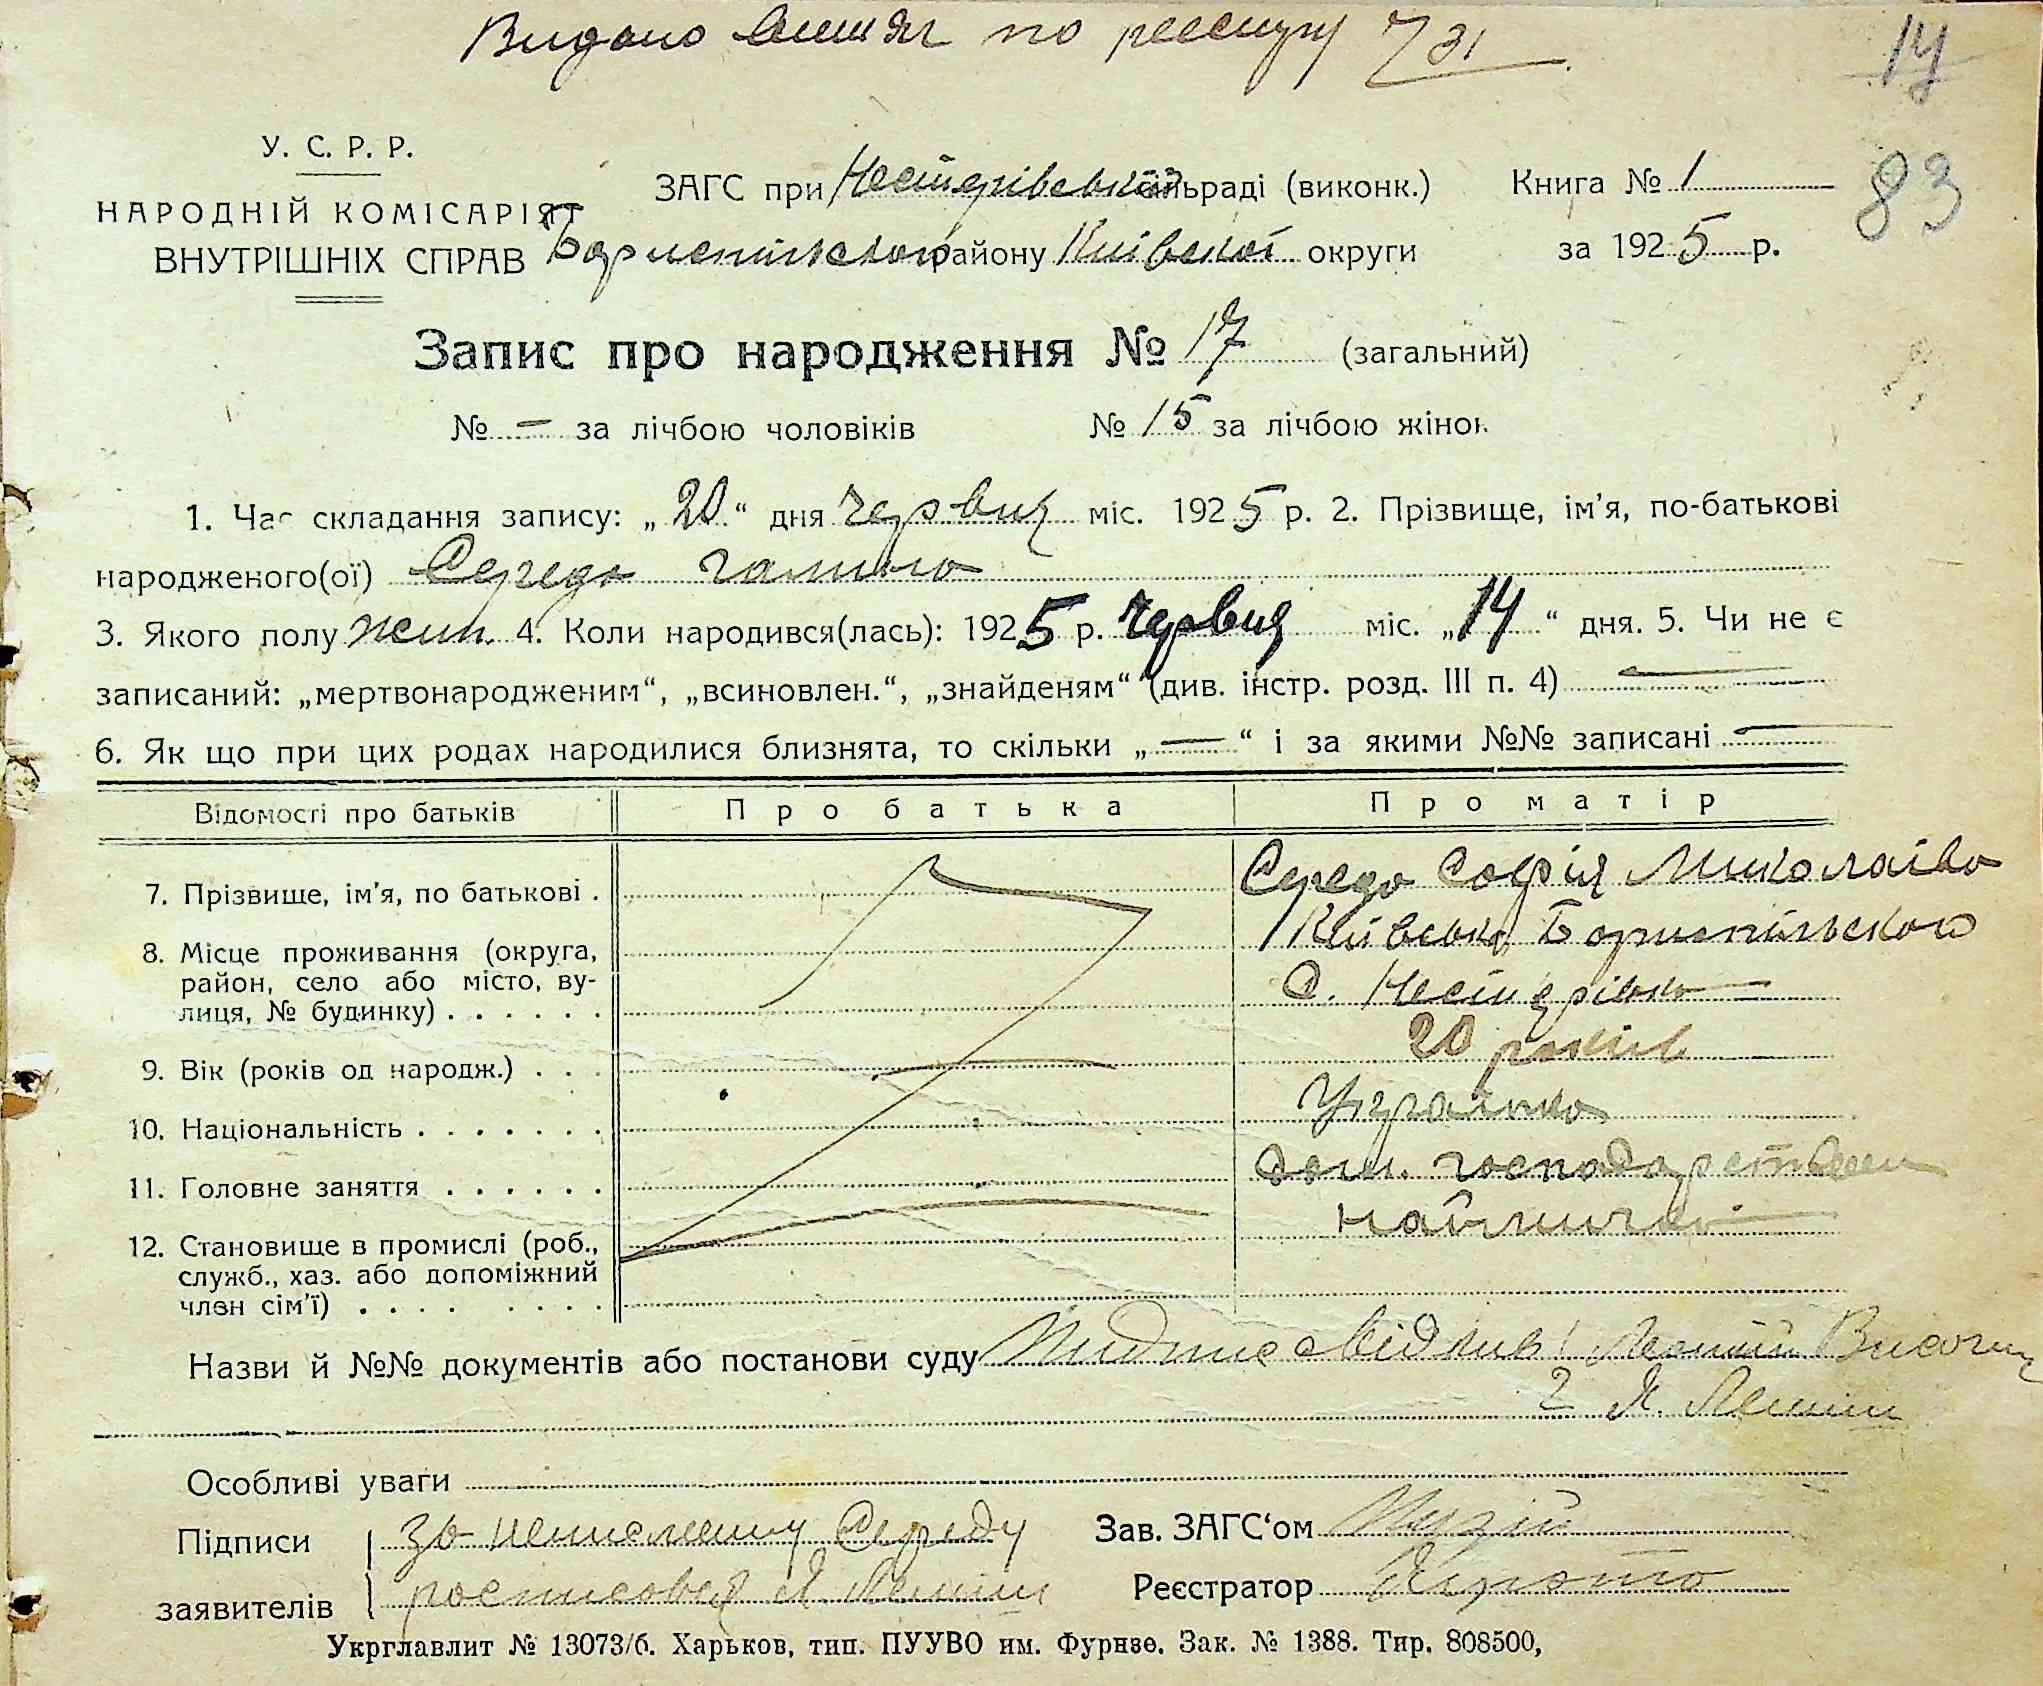 Видано по реєстру 731
14
У. С. Р. Р.
НАРОДНІЙ КОМІСАРІЯТ
ВНУТРІШНІХ СПРАВ
83
ЗАГС при Нестерівській сільраді (виконк.) Книга № 1
Бориспільского району Київскої округи за 1925 р.
Запис про народження № 17 (загальний)
№ — за лічбою чоловіків № 15 за лічбою жінок
1. Час складання запису: „20“ дня червня міс. 1925 р. 2. Прізвище, ім'я, по-батькові
народженого(ої) Середа Галина
3. Якого полу жін. 4. Коли народився(лась): 1925 р. червня міс. „14“ дня. 5. Чи не є
записаний: „мертвонародженим“, „всиновлен.“, „знайденям“ (див. інстр. розд. III п. 4) —
6. Як що при цих родах народилися близнята, то скільки „—“ і за якими №№ записані —
Відомості про батьків Про батька Про матір
7. Прізвище, ім'я, по батькові . Середа Софія Миколаївна
8. Місце проживання (округа, Київська Бориспільского
район, село або місто, ву- С. Нестерівка
лиця, № будинку) . . . . . .
9. Вік (років од народж.) . . . 20 років
10. Національність . . . . . . . Українка
11. Головне заняття . . . . . . дом. господарством
12. Становище в промислі (роб., наймичка
служб., хаз. або допоміжний
член сім'ї) . . . . . . . .
Назви й №№ документів або постанови суду Підпис свідків 1
2 Я.
Особливі уваги
Підписи За неписьменну Середу Зав. ЗАГС'ом
заявителів росписовся Я. Реєстратор
Укрглавлит № 13073/б. Харьков, тип. ПУУВО им. Фурнзе. Зак. № 1388. Тир. 808500,